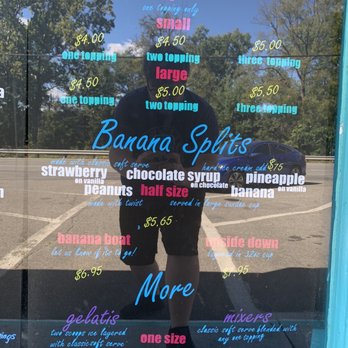 one topping only
small
$4.00 $4.50 $5.00
one topping two topping three topping
large
$4.50 $5.00 $5.50
one topping two topping three topping
Banana Splits
made with classic soft serve hard ice cream add $.75
strawberry on vanilla chocolate syrup on chocolate pineapple on vanilla
peanuts half size banana
made with twist served in large sundae cup
$5.65
banana boat upside down
let us know if its to go! in 32oz cup
$6.95 $7.95
More
gelatis mixers
two scoops ice layered classic soft serve blended with
with classic soft serve any one topping
one size